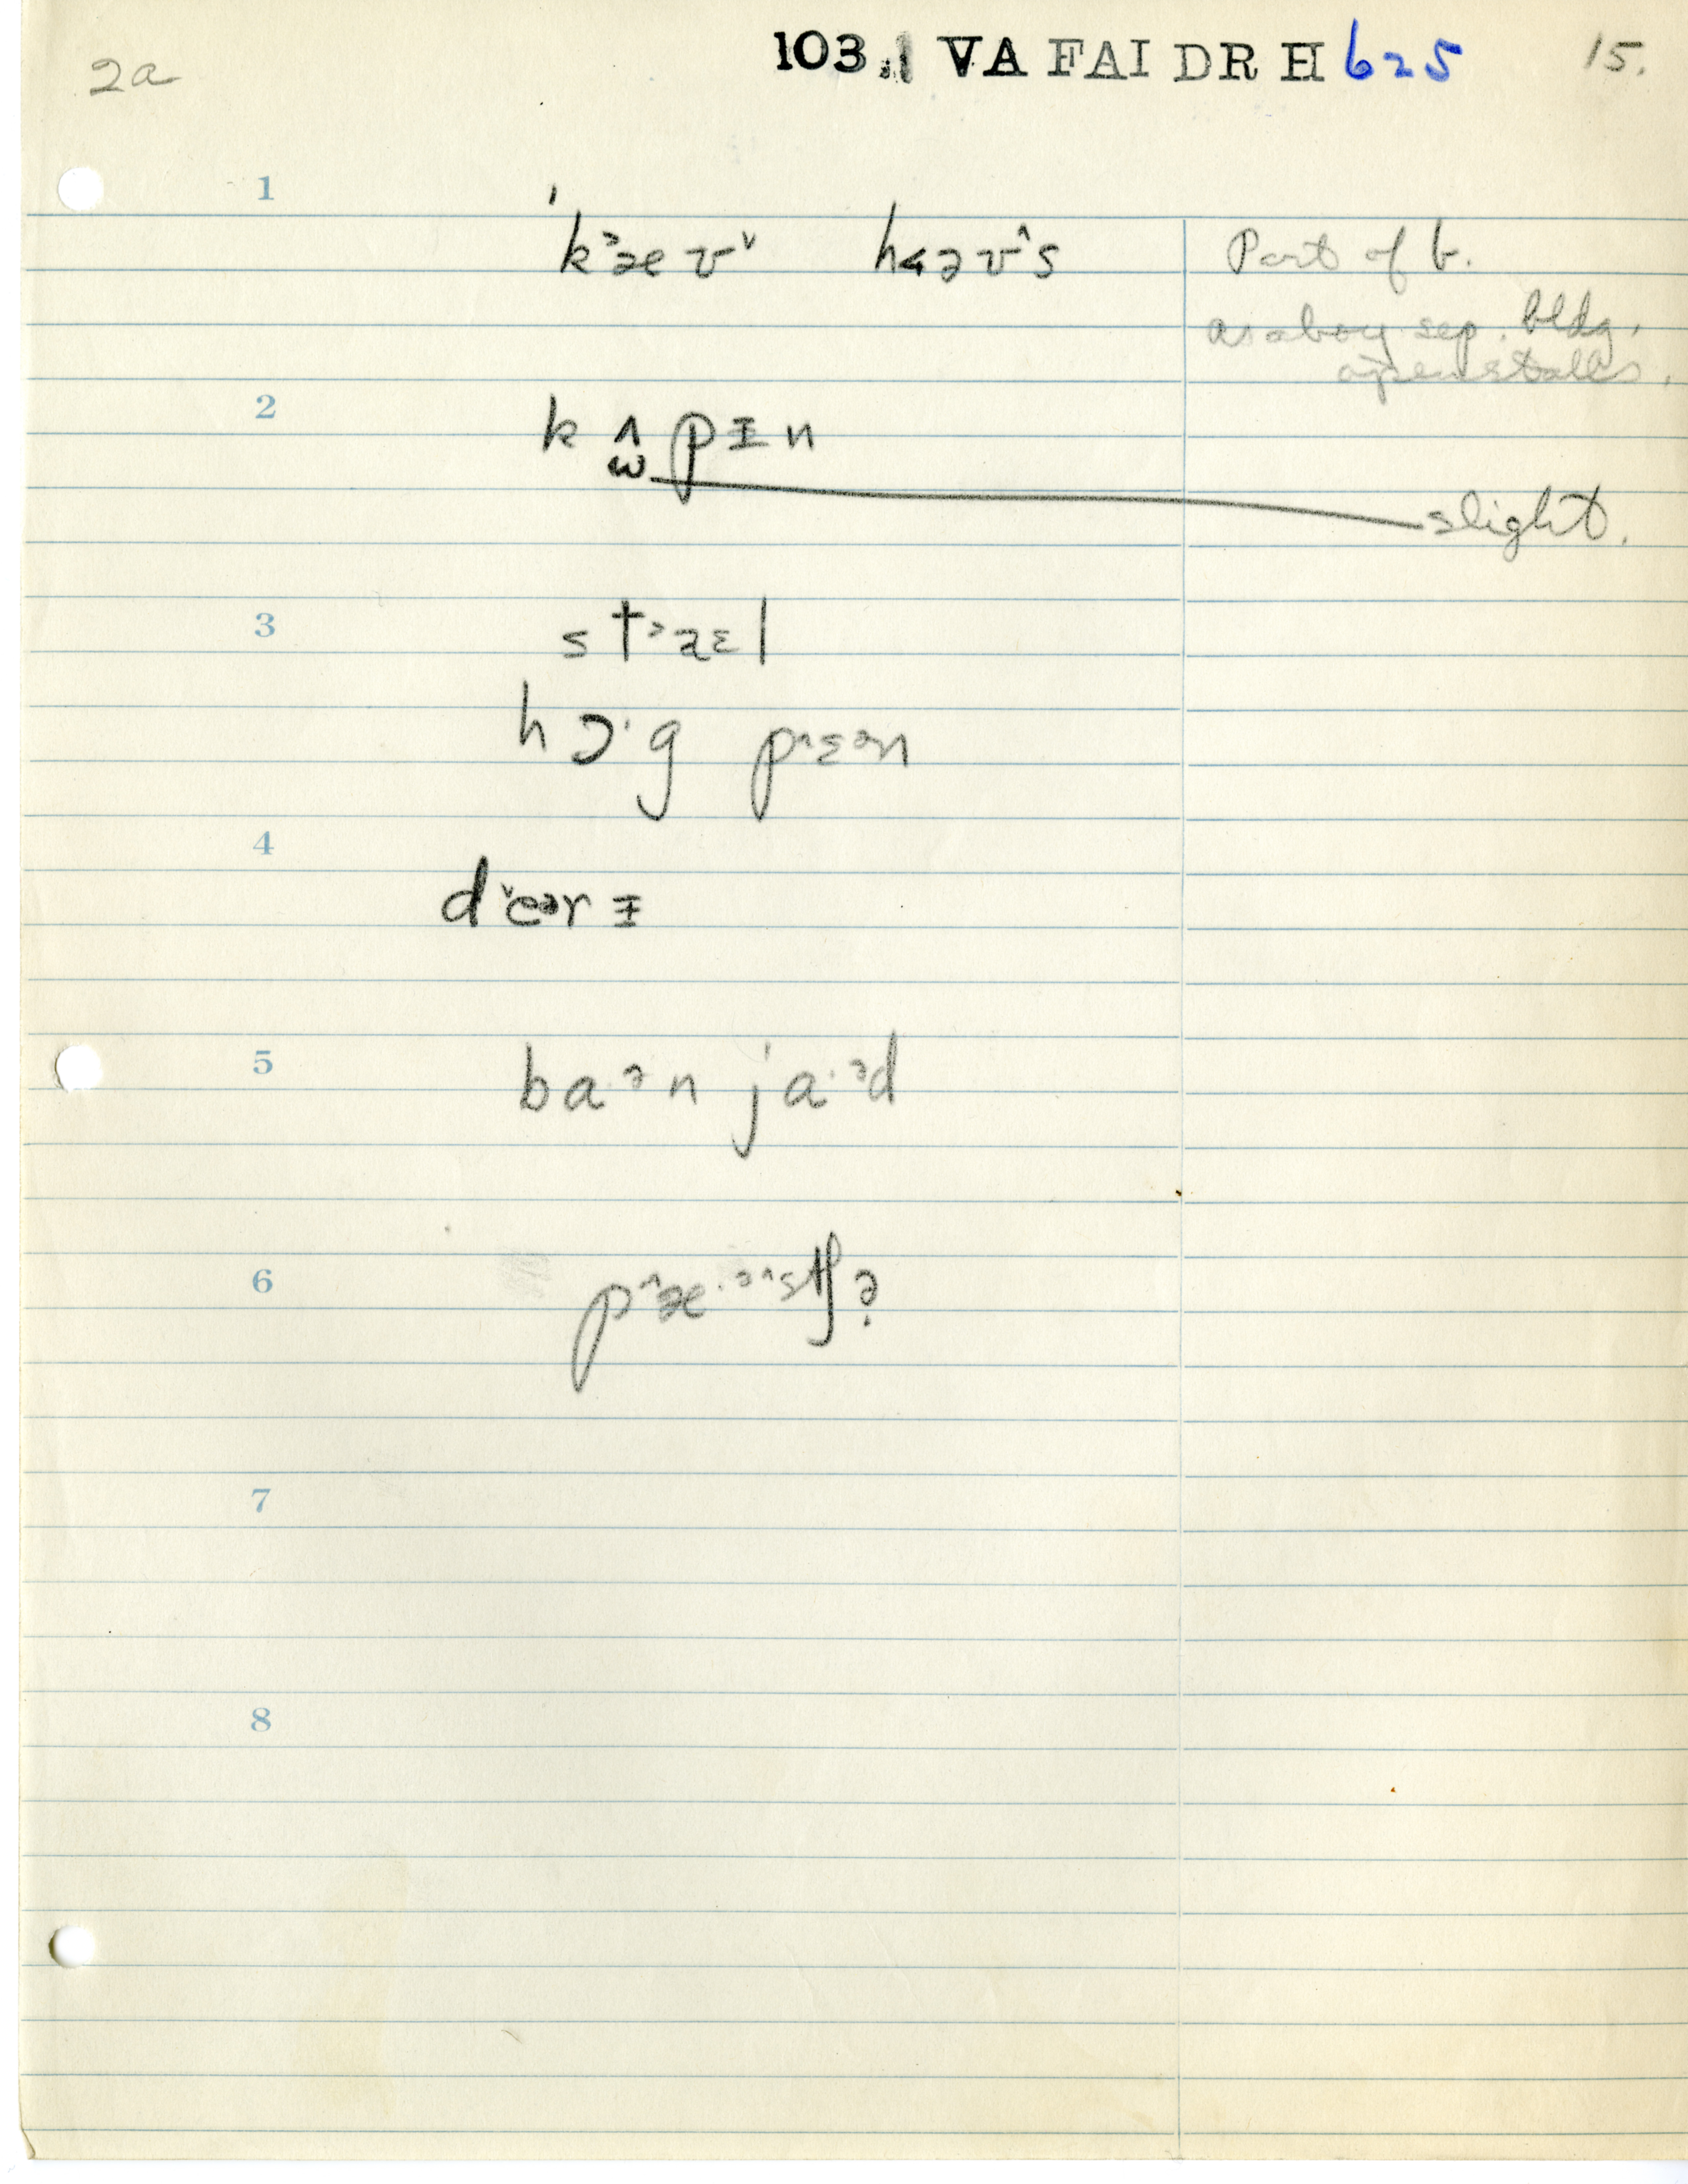 2a 103.1 VA FAI DR H 625 15.
1
ˈk˃æʊ˅ ha˂əʊ^s Part of b.
as a boy sep. bldg,
open stalls.
2
k ʌ p ɪ n
ω slight.
3
s t˃ɑɛl
h ɔ· g p^ɛən
4
d˅eər ɪ
5
ba·ən ja·əd
6
p^æ·ə^stʃə
7
8